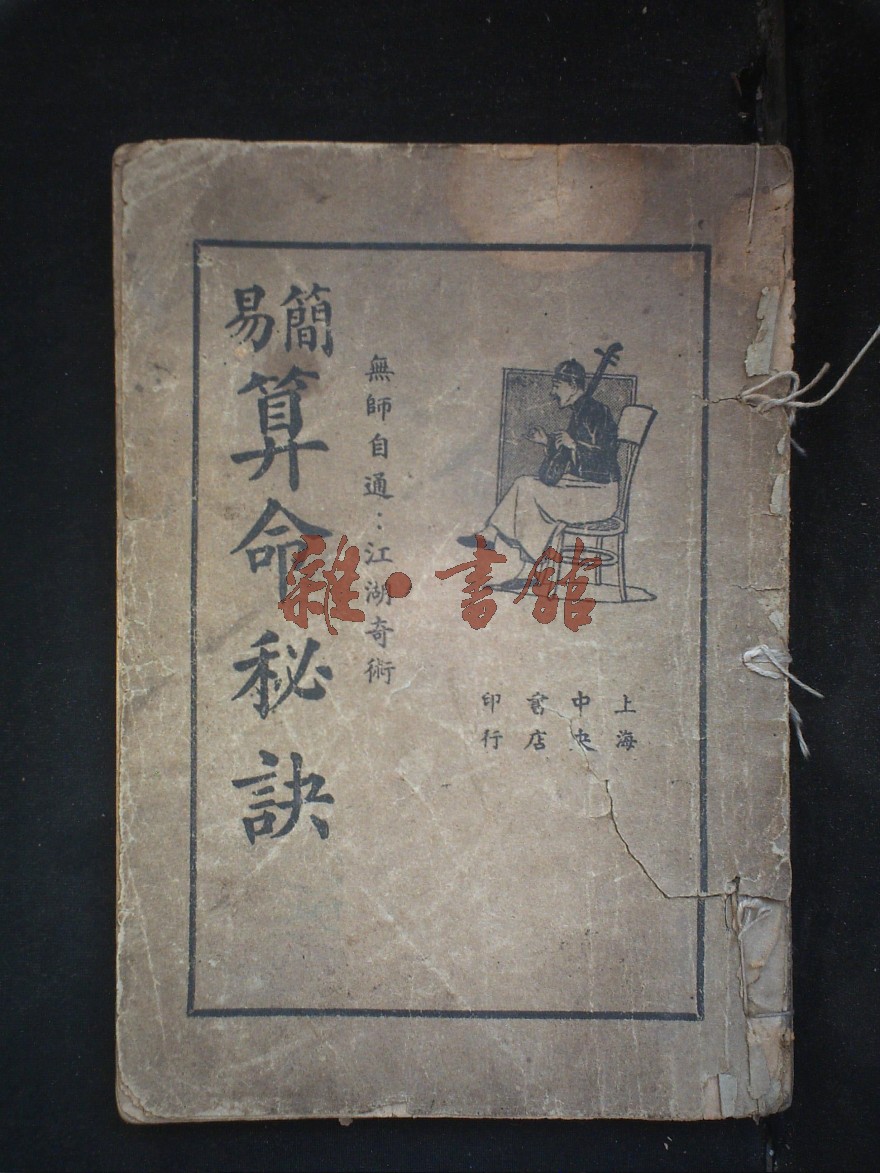 簡易
算命秘訣
無師自通：江湖奇術
上海
中央
書店
印行
雜·書館